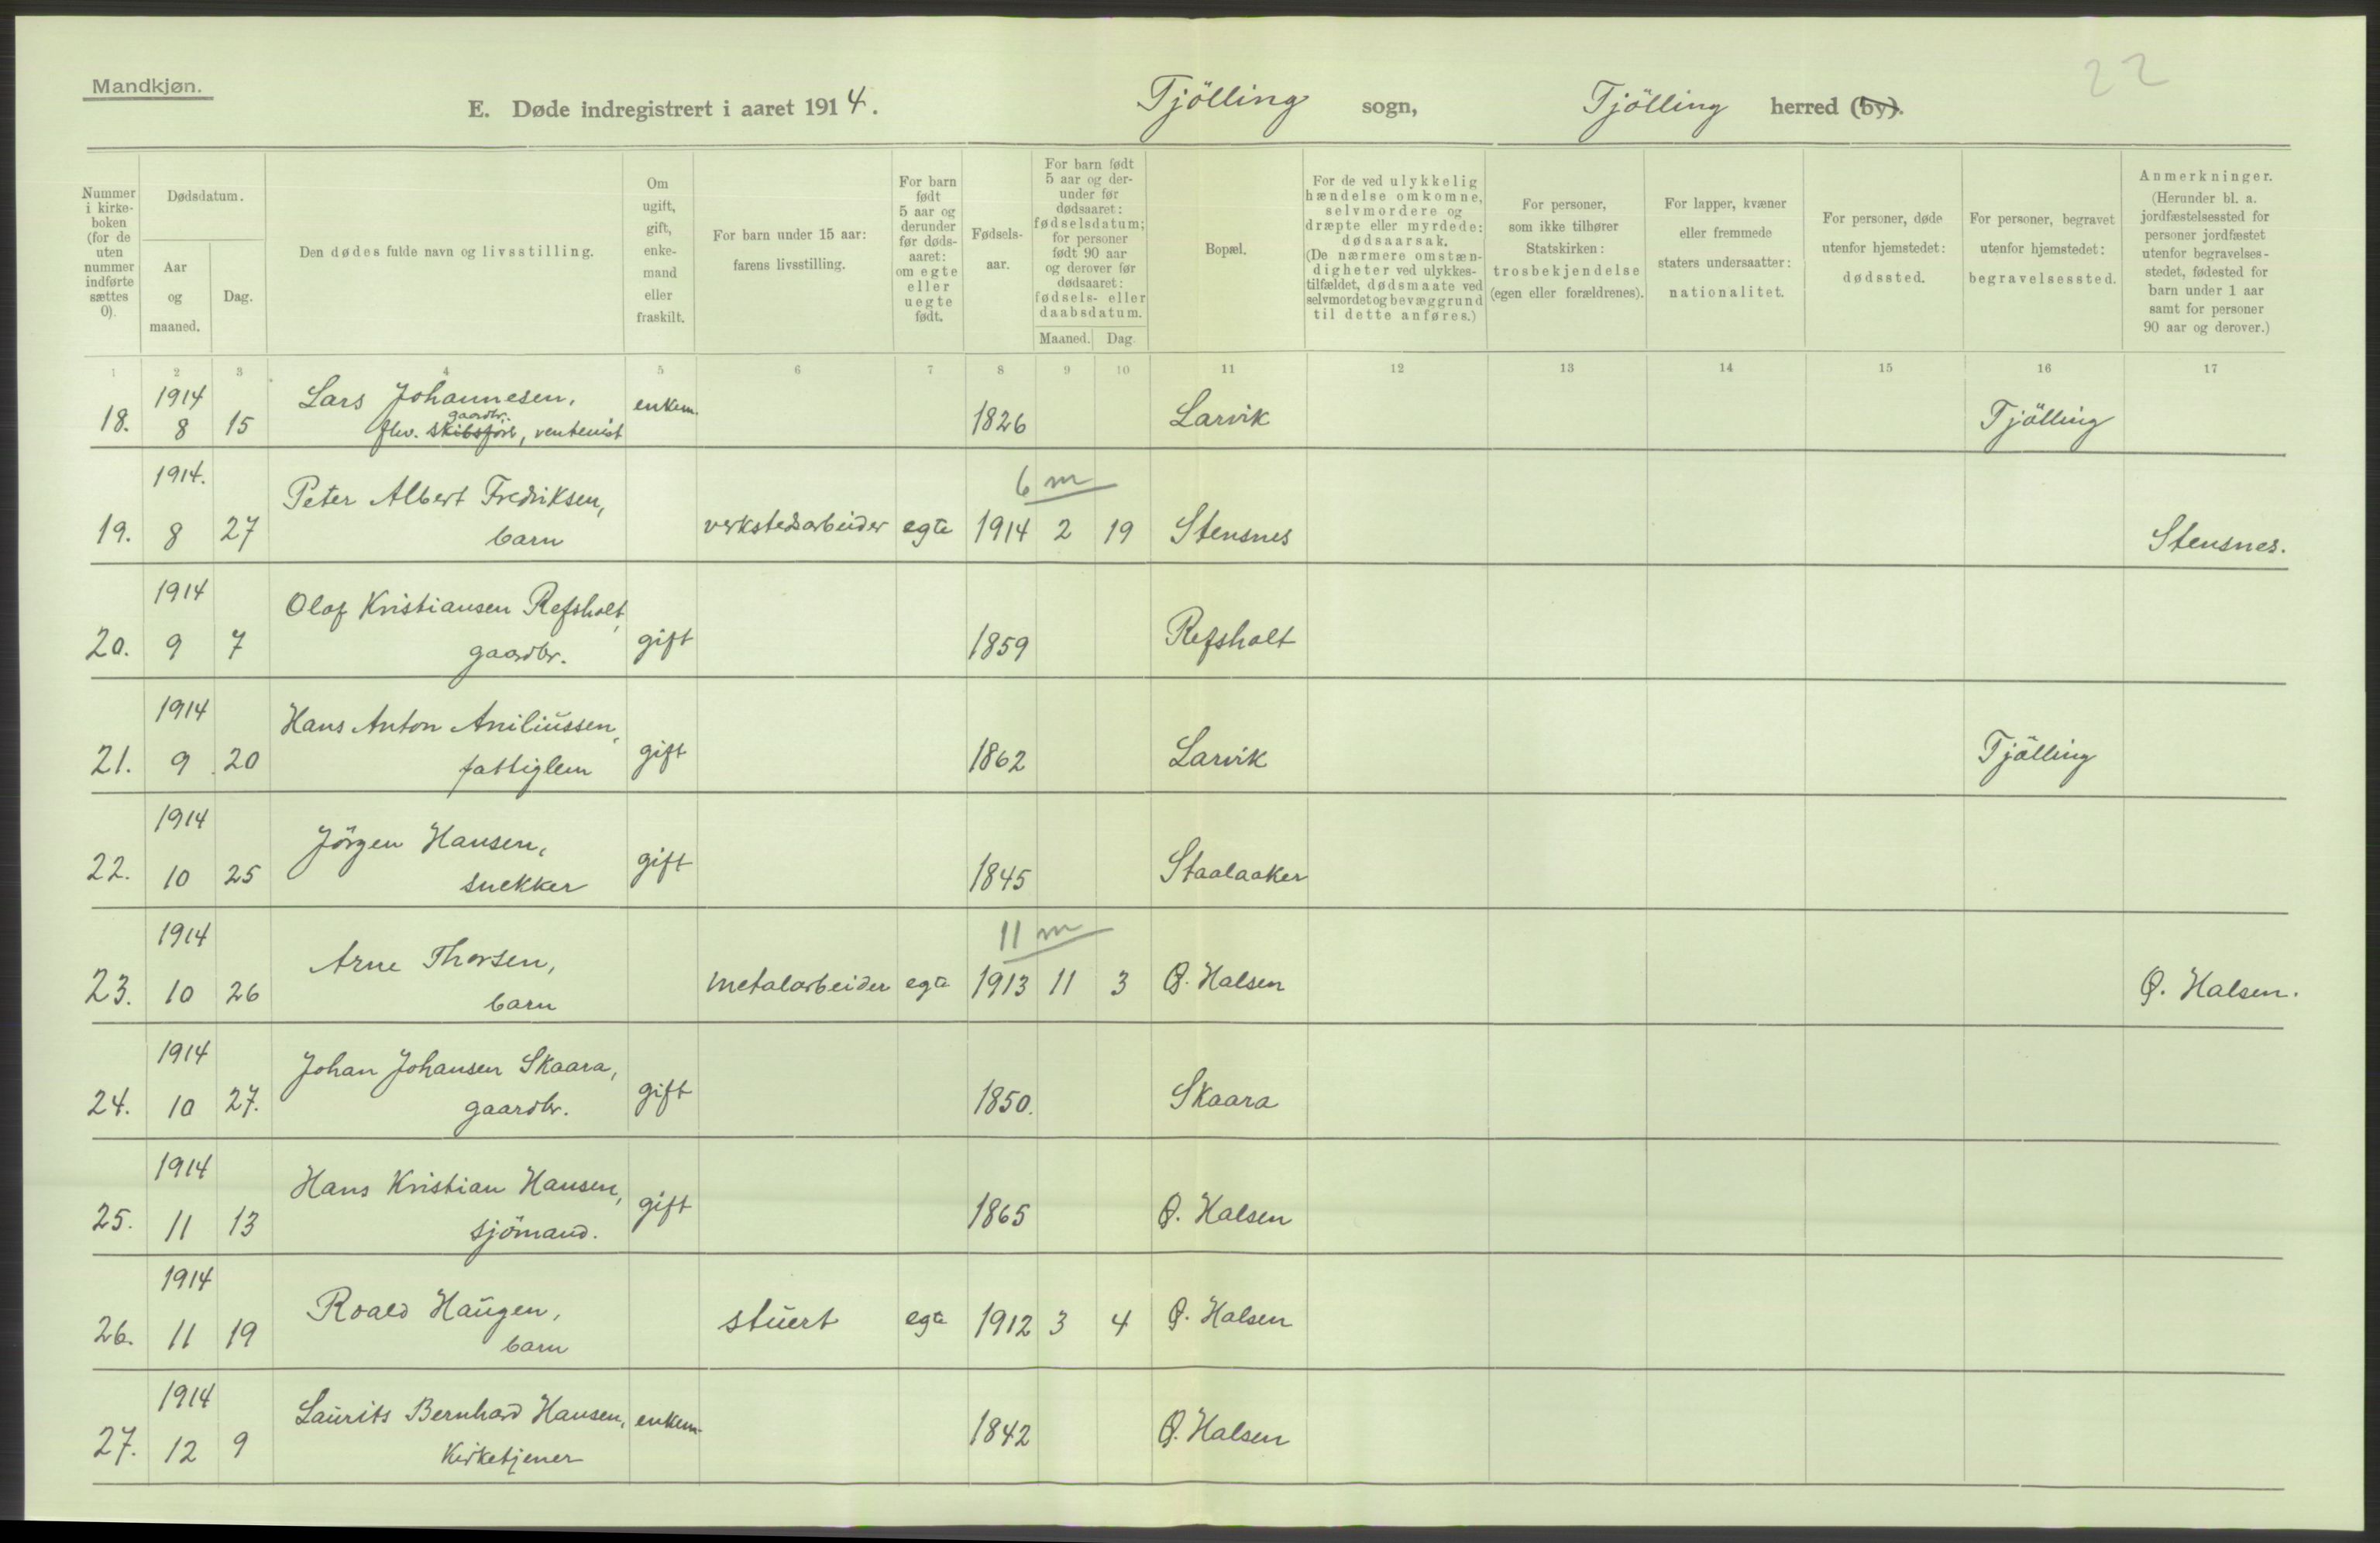 Mandkjøn.
22
E. Døde indregistrert i aaret 1914. Tjölling sogn, Tjölling herred (by).
Nummer i kirke-boken (for de uten nummer indførte sættes 0).
Dødsdatum.
Aar og maaned.
Dag.
Den dødes fulde navn og livsstilling.
Om ugift, gift, enke-mand eller fraskilt.
For barn under 15 aar: farens livsstilling.
For barn født 5 aar og derunder før døds-aaret: om egte eller uegte født.
Fødsels-aar.
For barn født 5 aar og der-under før dødsaaret: fødselsdatum; for personer født 90 aar og derover før dødsaaret: fødsels- eller daabsdatum.
Maaned. Dag
Bopæl.
For de ved ulykkelig hændelse omkomne, selvmordere og dræpte eller myrdede: dødsaarsak. (De nærmere omstæn-digheter ved ulykkes-tilfældet, dødsmaate ved selvmordet og bevæggrund til dette anføres.)
For personer, som ikke tilhører Statskirken: trosbekjendelse (egen eller forældrenes).
For lapper, kvæner eller fremmede staters undersaatter: nationalitet.
For personer, døde utenfor hjemstedet: dødssted.
For personer, begravet utenfor hjemstedet: begravelsessted.
Anmerkninger. (Herunder bl. a. jordfæstelsessted for personer jordfæstet utenfor begravelses-stedet, fødested for barn under 1 aar samt for personer 90 aar og derover.)
1 2 3 4 5 6 7 8 9 10 11 12 13 14 15 16 17
1914 Lars Johannesen, enkem.
gaardbr.
18. 8 15 flv. skibsför, rentenist 1826 Larvik Tjölling
1914. Peter Albert Fredriksen, 6 m
19. 8 27 barn verkstedsarbeider egte 1914 2 19 Stensnes Stensnes.
1914 Olaf Kristiansen Refsholt,
20. 9 7 gaardbr. gift 1859 Refsholt
1914 Hans Anton Aniliussen,
21. 9 20 fattiglem gift 1862 Larvik Tjölling
1914 Jörgen Hansen,
22. 10 25 snekker gift 1845 Staalaaker
1914 Arne Thorsen, 11 m
23. 10 26 barn metalarbeider egte 1913 11 3 Ø. Halsen Ø. Halsen.
1914 Johan Johansen Skaara,
24. 10 27. gaardbr. gift 1850. Skaara
1914 Hans Kristian Hansen,
25. 11 13 sjömand. gift 1865 Ø. Halsen
1914 Roald Haugen,
26. 11 19 barn stuert egte 1912 3 4 Ø. Halsen
1914 Laurits Bernhard Hansen, enkem.
27. 12 9 Kirketjener 1842 Ø. Halsen